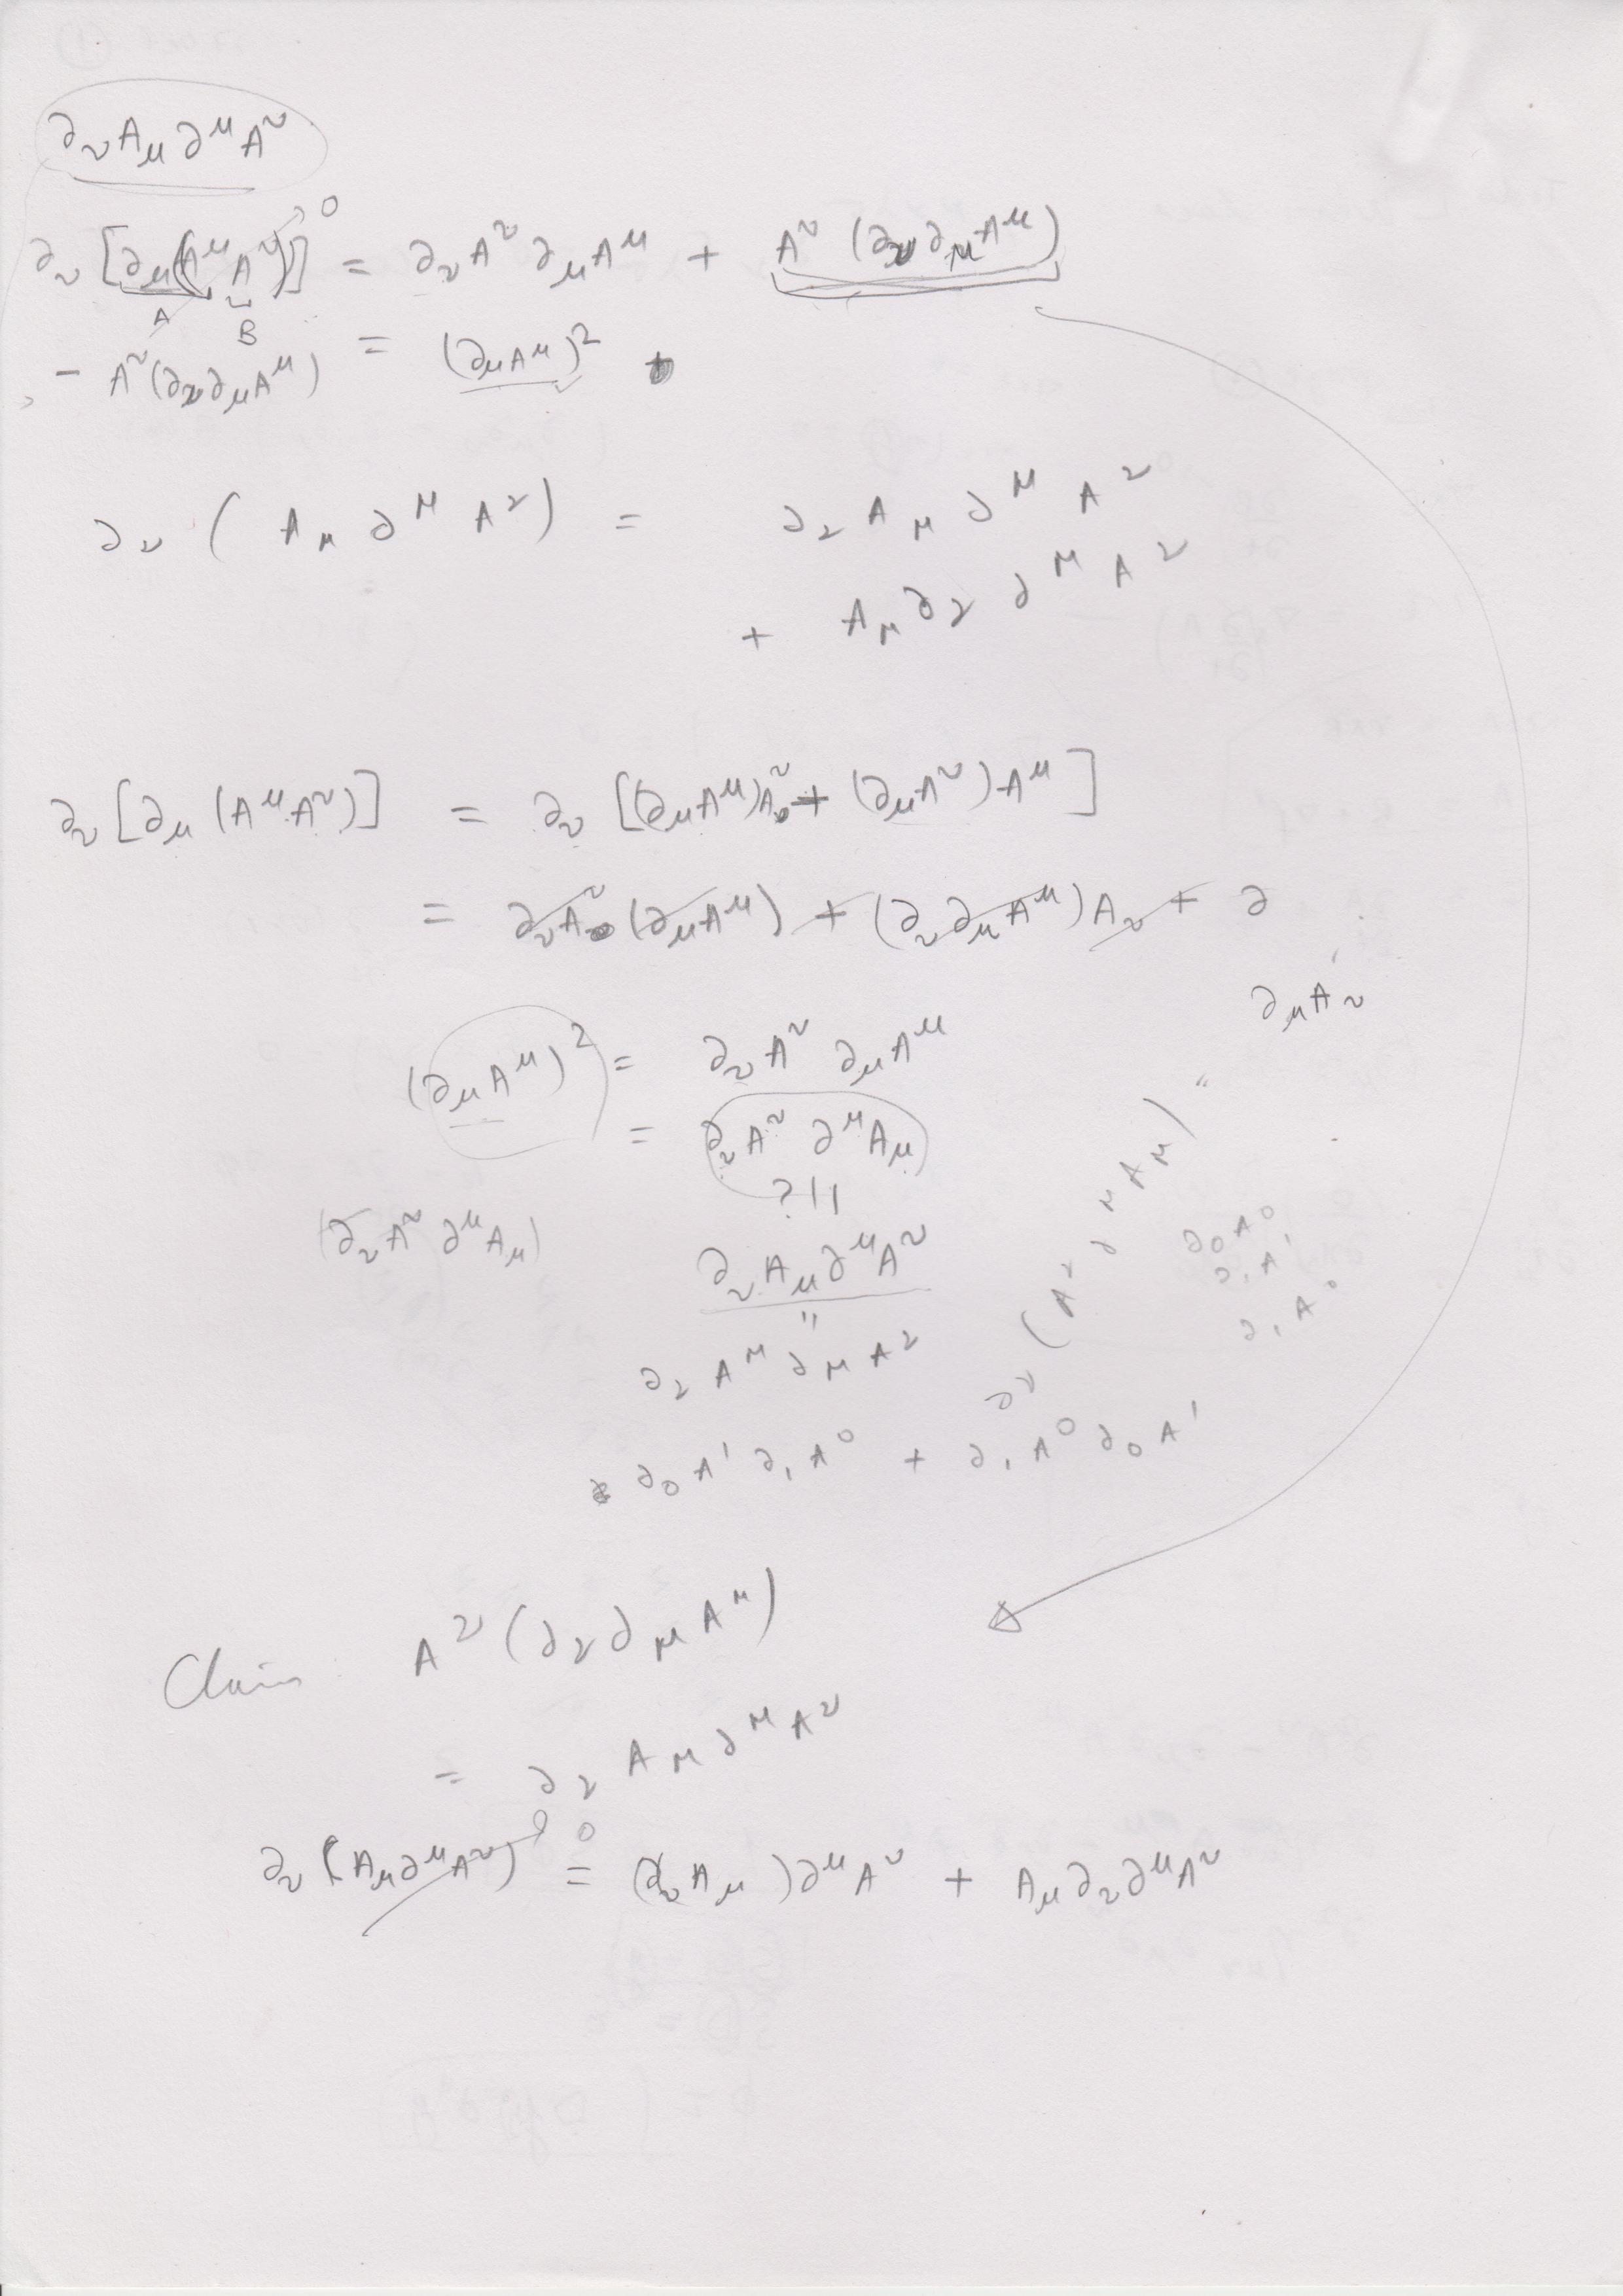 ∂_ν A_μ ∂^μ A^ν
∂_ν [∂_μ(A^μ A^ν)] = ∂_ν A^ν ∂_μ A^μ + A^ν (∂_ν ∂_μ A^μ)
0
A
B
- A^ν(∂_ν ∂_μ A^μ) = (∂_μ A^μ)^2
∂_ν ( A_μ ∂^μ A^ν ) = ∂_ν A_μ ∂^μ A^ν
+ A_μ ∂_ν ∂^μ A^ν
∂_ν [∂_μ (A^μ A^ν)] = ∂_ν [(∂_μ A^μ)A^ν + (∂_μ A^ν) A^μ]
= ∂_ν A^ν (∂_μ A^μ) + (∂_ν ∂_μ A^μ) A_ν + ∂
∂_μ A_ν
(∂_μ A^μ)^2 = ∂_ν A^ν ∂_μ A^μ
= ∂_ν A^ν ∂^μ A_μ
? ||
(∂_ν A^ν ∂^μ A_μ)
∂_ν A_μ ∂^μ A^ν
"
∂_ν A^μ ∂_μ A^ν
∂_ν (A^ν ∂^μ A_μ) =
∂_0 A^0
∂_1 A^1
∂_1 A^0
∂_0 A^1 ∂_1 A^0 + ∂_1 A^0 ∂_0 A^1
Claim A^ν (∂_ν ∂_μ A^μ)
= ∂_ν A_μ ∂^μ A^ν
∂_ν (A_μ ∂^μ A^ν) 0 = (∂_ν A_μ) ∂^μ A^ν + A_μ ∂_ν ∂^μ A^ν